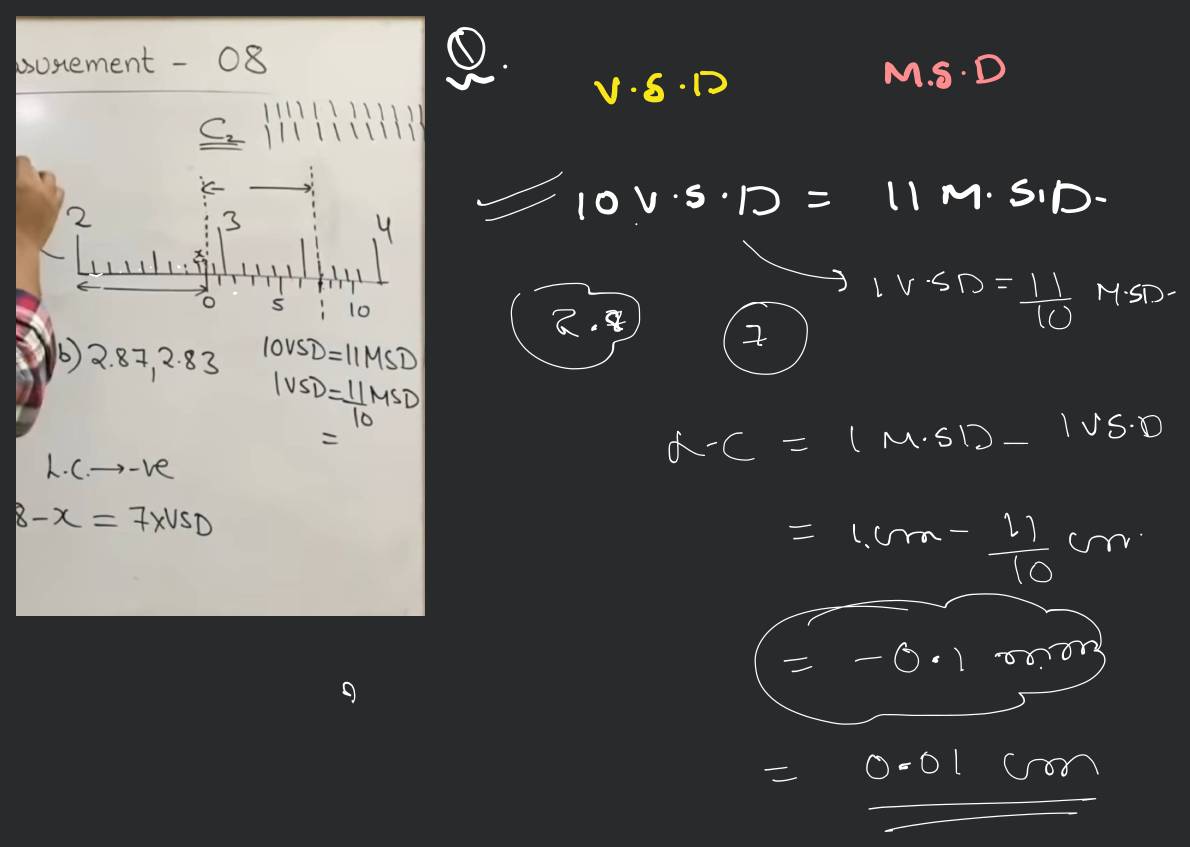 surement - 08
C₂
2
3
4
x
0 5 10
b) 2.87, 2.83
10VSD=11MSD
1VSD=11/10 MSD
=
L.C.→-ve
8-x = 7xVSD
Q.
V.S.D
M.S.D
10 V.S.D = 11 M.S.D-
1 V.SD = 11/10 M.SD-
2.8
7
L-C = 1 M.SD - 1 VS.D
= 1 cm - 11/10 cm.
= -0.1 mm
= 0.01 cm